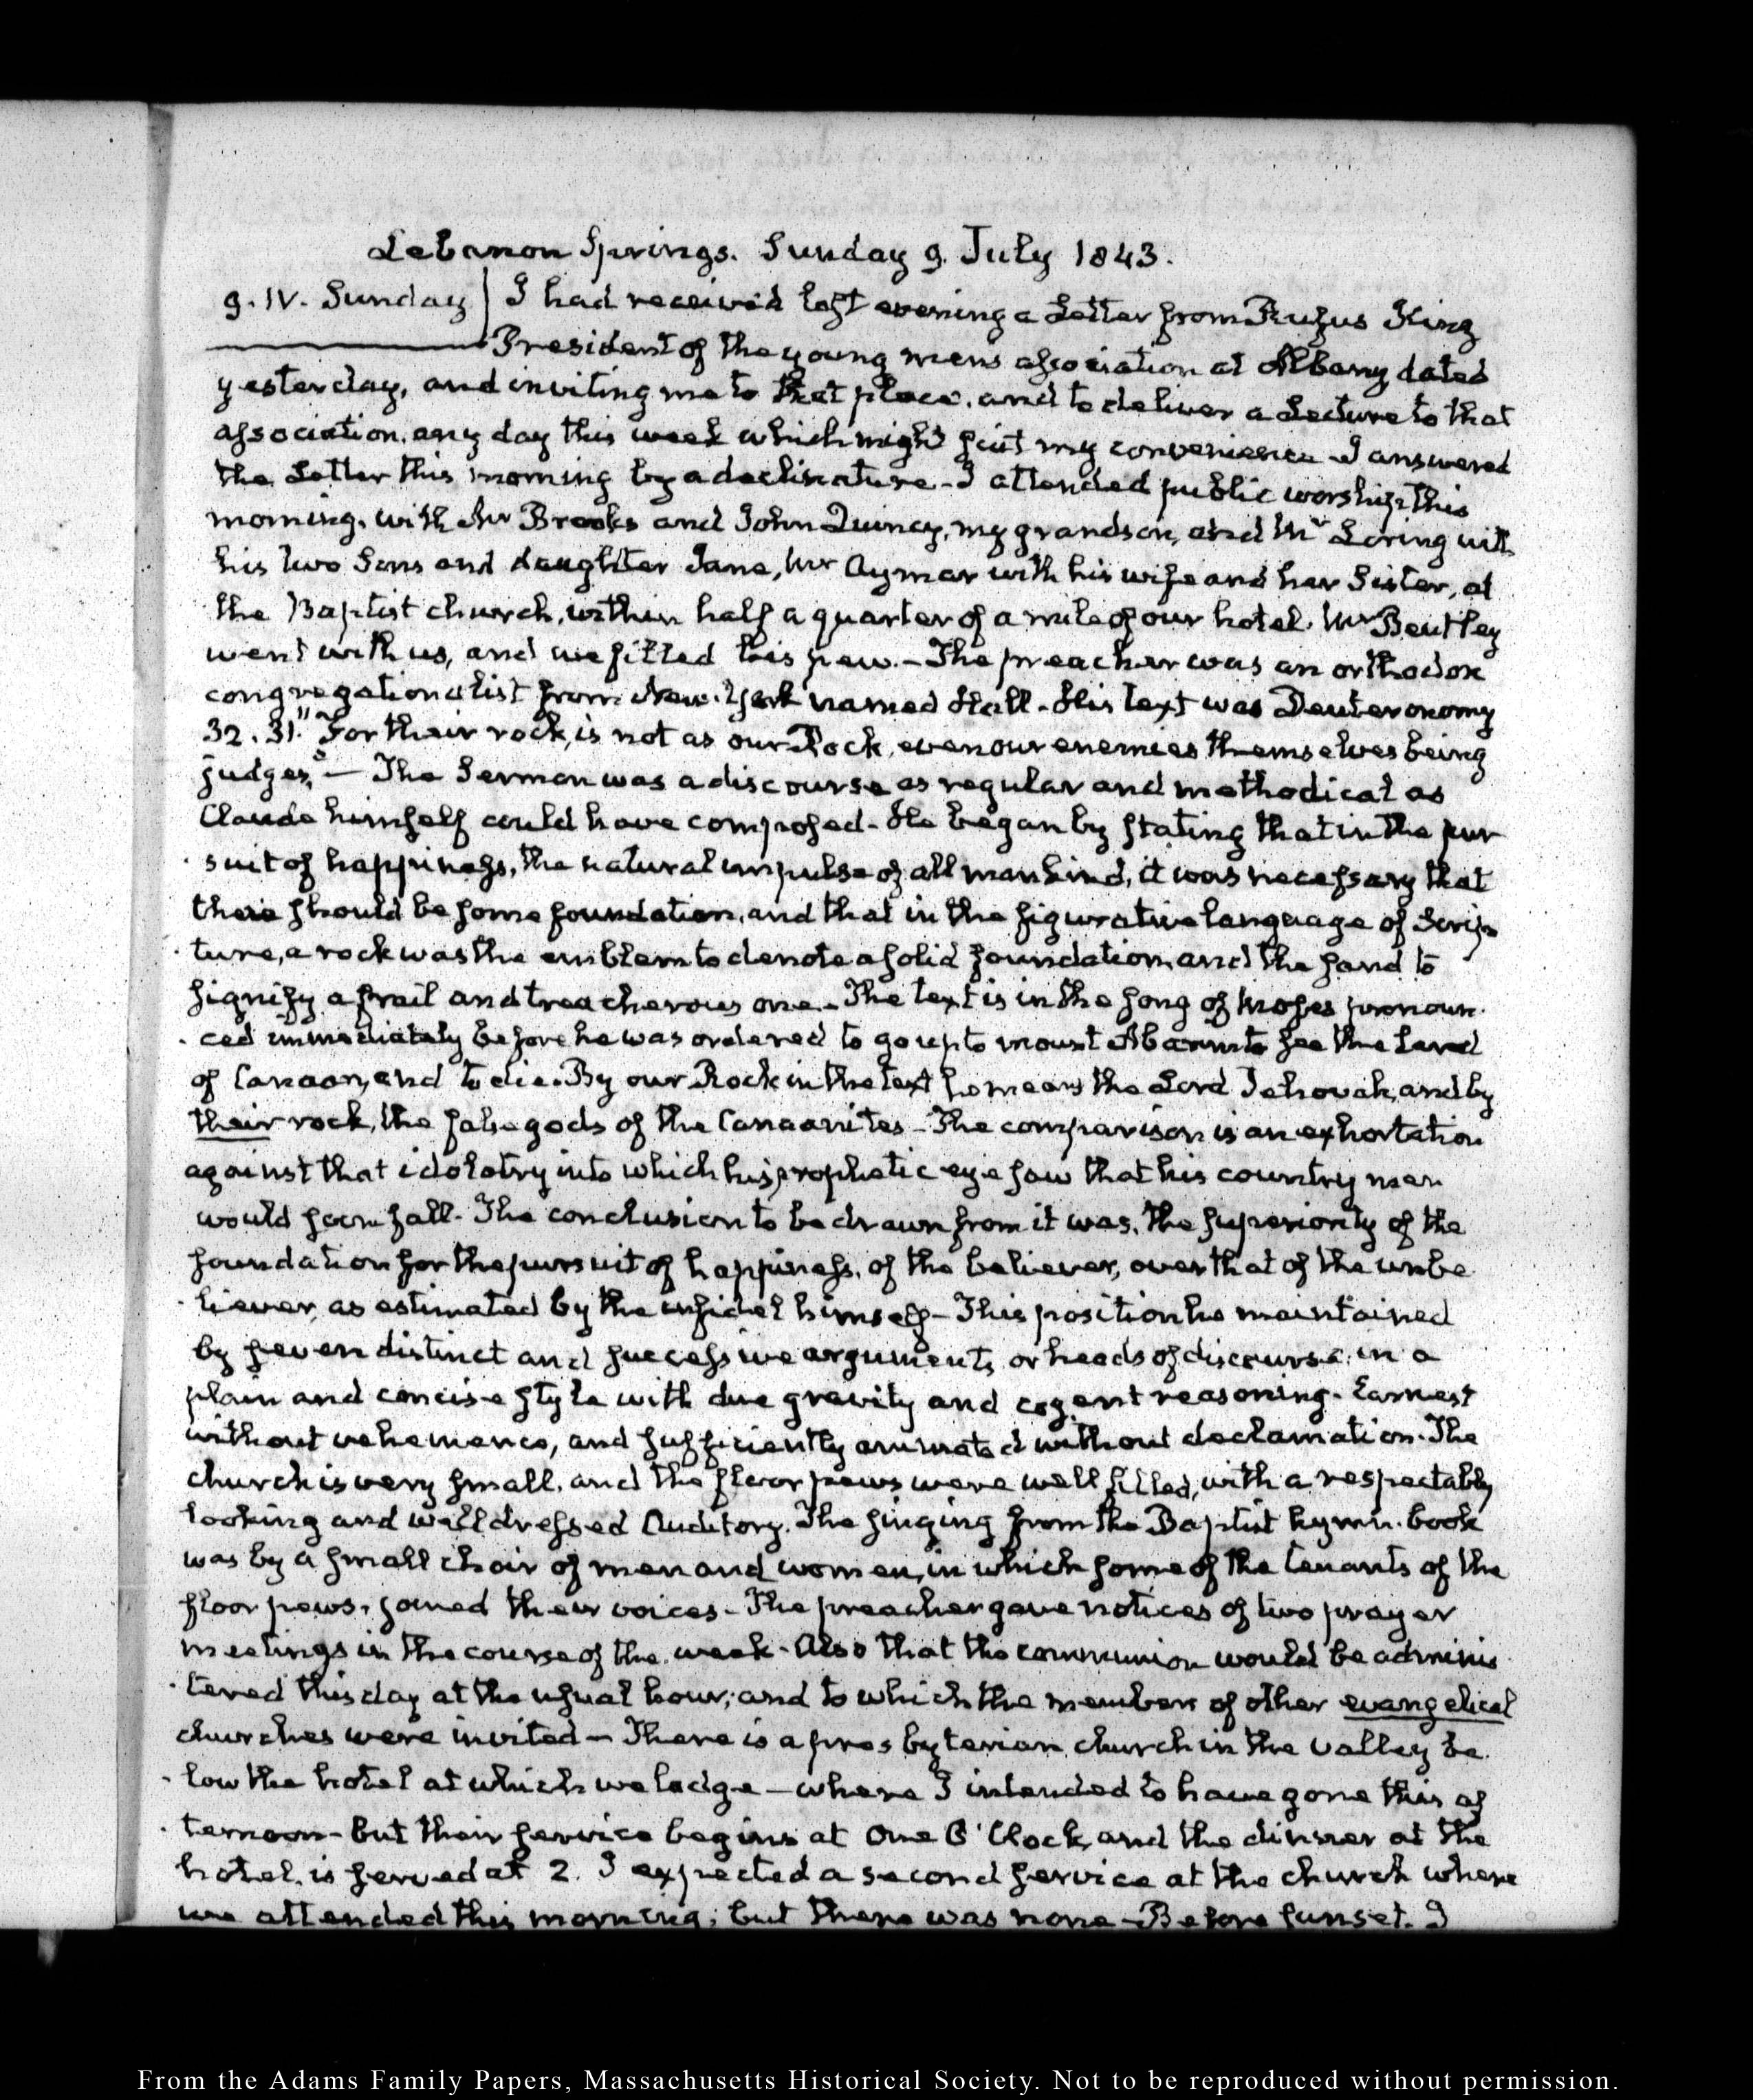 Lebanon Springs. Sunday 9. July 1843.
9. IV. Sunday | I had received last evening a Letter from Rufus King
President of the young mens association at Albany dated
yesterday, and inviting me to that place, and to deliver a Lecture to that
association, any day this week which might suit my convenience – I answered
the Letter this morning by a declinature – I attended public worship this
morning, with Mr Brooks and John Quincy, my grandson, and Mr Loring with
his two Sons and daughter Jane, Mr Aymar with his wife and her Sister, at
the Baptist church, within half a quarter of a mile of our hotel. Mr Bentley
went with us, and we filled his pew. – The preacher was an orthodox
congregationalist from New-York named Hall – His text was Deuteronomy
32. 31. "For their rock, is not as our Rock, even our enemies themselves being
judges" – The Sermon was a discourse as regular and methodical as
Claude himself could have composed – He began by stating that in the pur
suit of happiness, the natural impulse of all mankind, it was necessary that
there should be some foundation, and that in the figurative language of Scrip
ture, a rock was the emblem to denote a solid foundation, and the sand to
signify a frail and treacherous one – The text is in the song of Moses pronoun
ced immediately before he was ordered to go up to mount Abarim to see the Land
of Canaan, and to die. By our Rock in the text he means the Lord Jehovah, and by
their rock, the false gods of the Canaanites – The comparison is an exhortation
against that idolatry into which his prophetic eye saw that his country men
would soon fall – The conclusion to be drawn from it was, the superiority of the
foundation for the pursuit of happiness, of the believer, over that of the unbe
liever, as estimated by the infidel himself – This position he maintained
by seven distinct and successive arguments, or heads of discourse, in a
plain and concise style with due gravity and cogent reasoning. Earnest
without vehemence, and sufficiently animated without declamation. The
church is very small, and the floor pews were well filled, with a respectably
looking and well dressed Auditory. The singing from the Baptist hymn-book
was by a small choir of men and women, in which some of the tenants of the
floor pews, joined their voices – The preacher gave notices of two prayer
meetings in the course of the week – Also that the communion would be adminis
tered this day at the usual hour; and to which the members of other evangelical
churches were invited – There is a presbyterian church in the valley be
low the hotel at which we lodge – where I intended to have gone this af
ternoon – but their service begins at One O'Clock, and the dinner at the
hotel is served at 2. I expected a second service at the church where
we attended this morning; but there was none – Before sunset. I
From the Adams Family Papers, Massachusetts Historical Society. Not to be reproduced without permission.